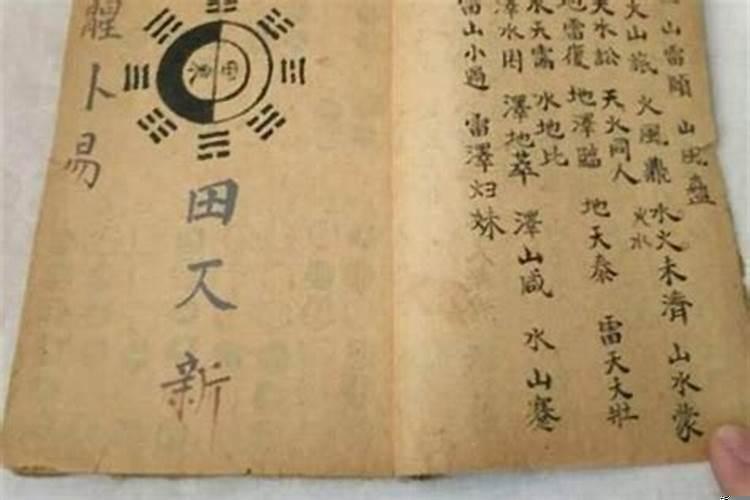 山雷頤
山風蠱
火山旅
火風鼎
水火未濟
火水
山水蒙
天水訟
天火同人
地雷復
地澤臨
地天泰
雷天大壯
水天需
水地比
澤水困
澤地萃
澤山咸
水山蹇
雷山小過
雷澤归妹
田又新
卜易